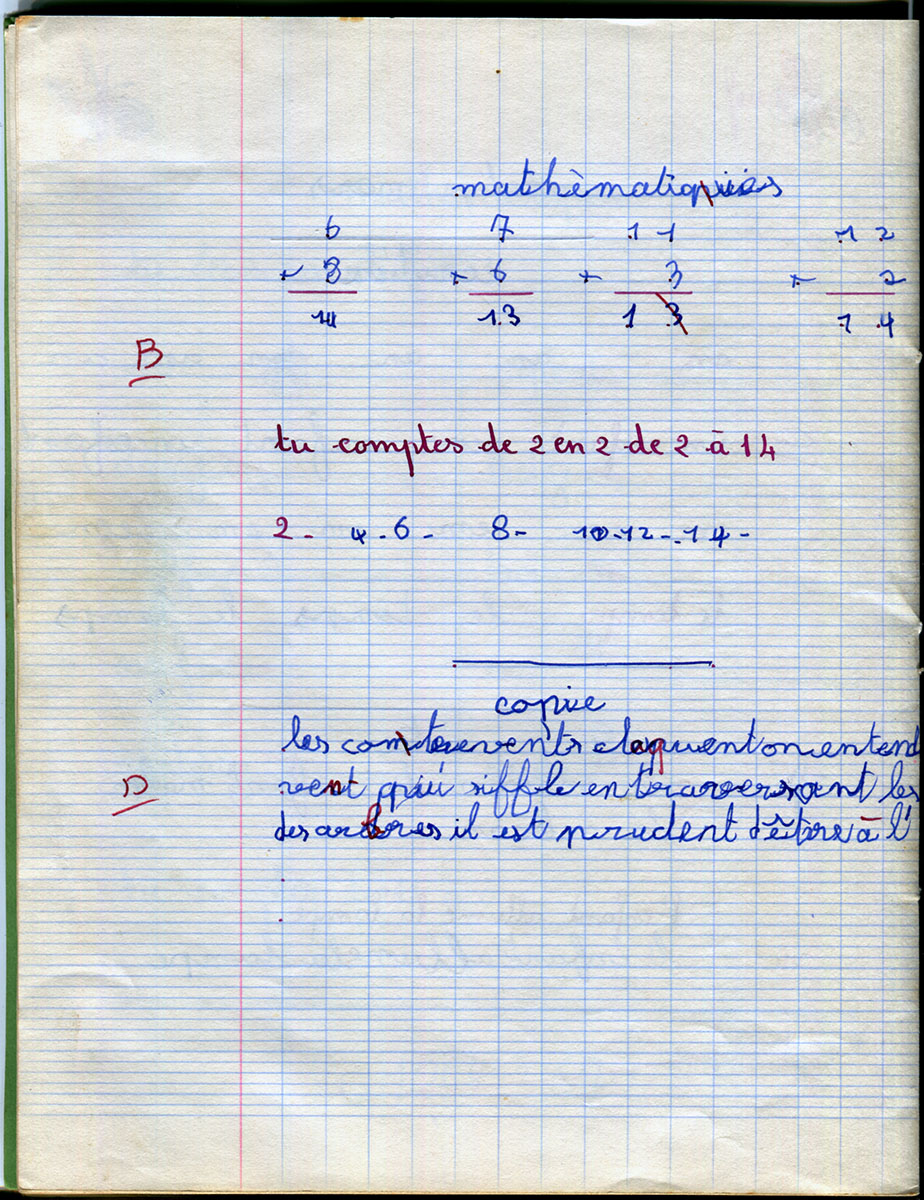 mathèmatiques
6 7 11 12
+ 8 + 6 + 3 + 2
14 13 13 14
B
tu comptes de 2 en 2 de 2 à 14
2 - 4 - 6 - 8 - 10 - 12 - 14 -
copie
les contrevents claquent on entend
D
vent qui siffle en traversant les
des arbres il est prudent d'être à l'